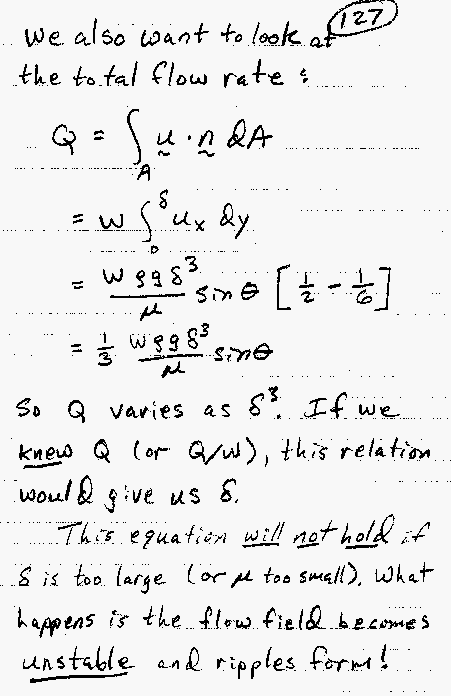 127
We also want to look at
the total flow rate:
Q = ∫_A ṵ · ṋ dA
= W ∫_0^δ u_x dy
= Wρgδ³/μ sinθ [1/2 - 1/6]
= 1/3 Wρgδ³/μ sinθ
So Q varies as δ³. If we
knew Q (or Q/W), this relation
would give us δ.
This equation will not hold if
δ is too large (or μ too small). What
happens is the flow field becomes
unstable and ripples form!